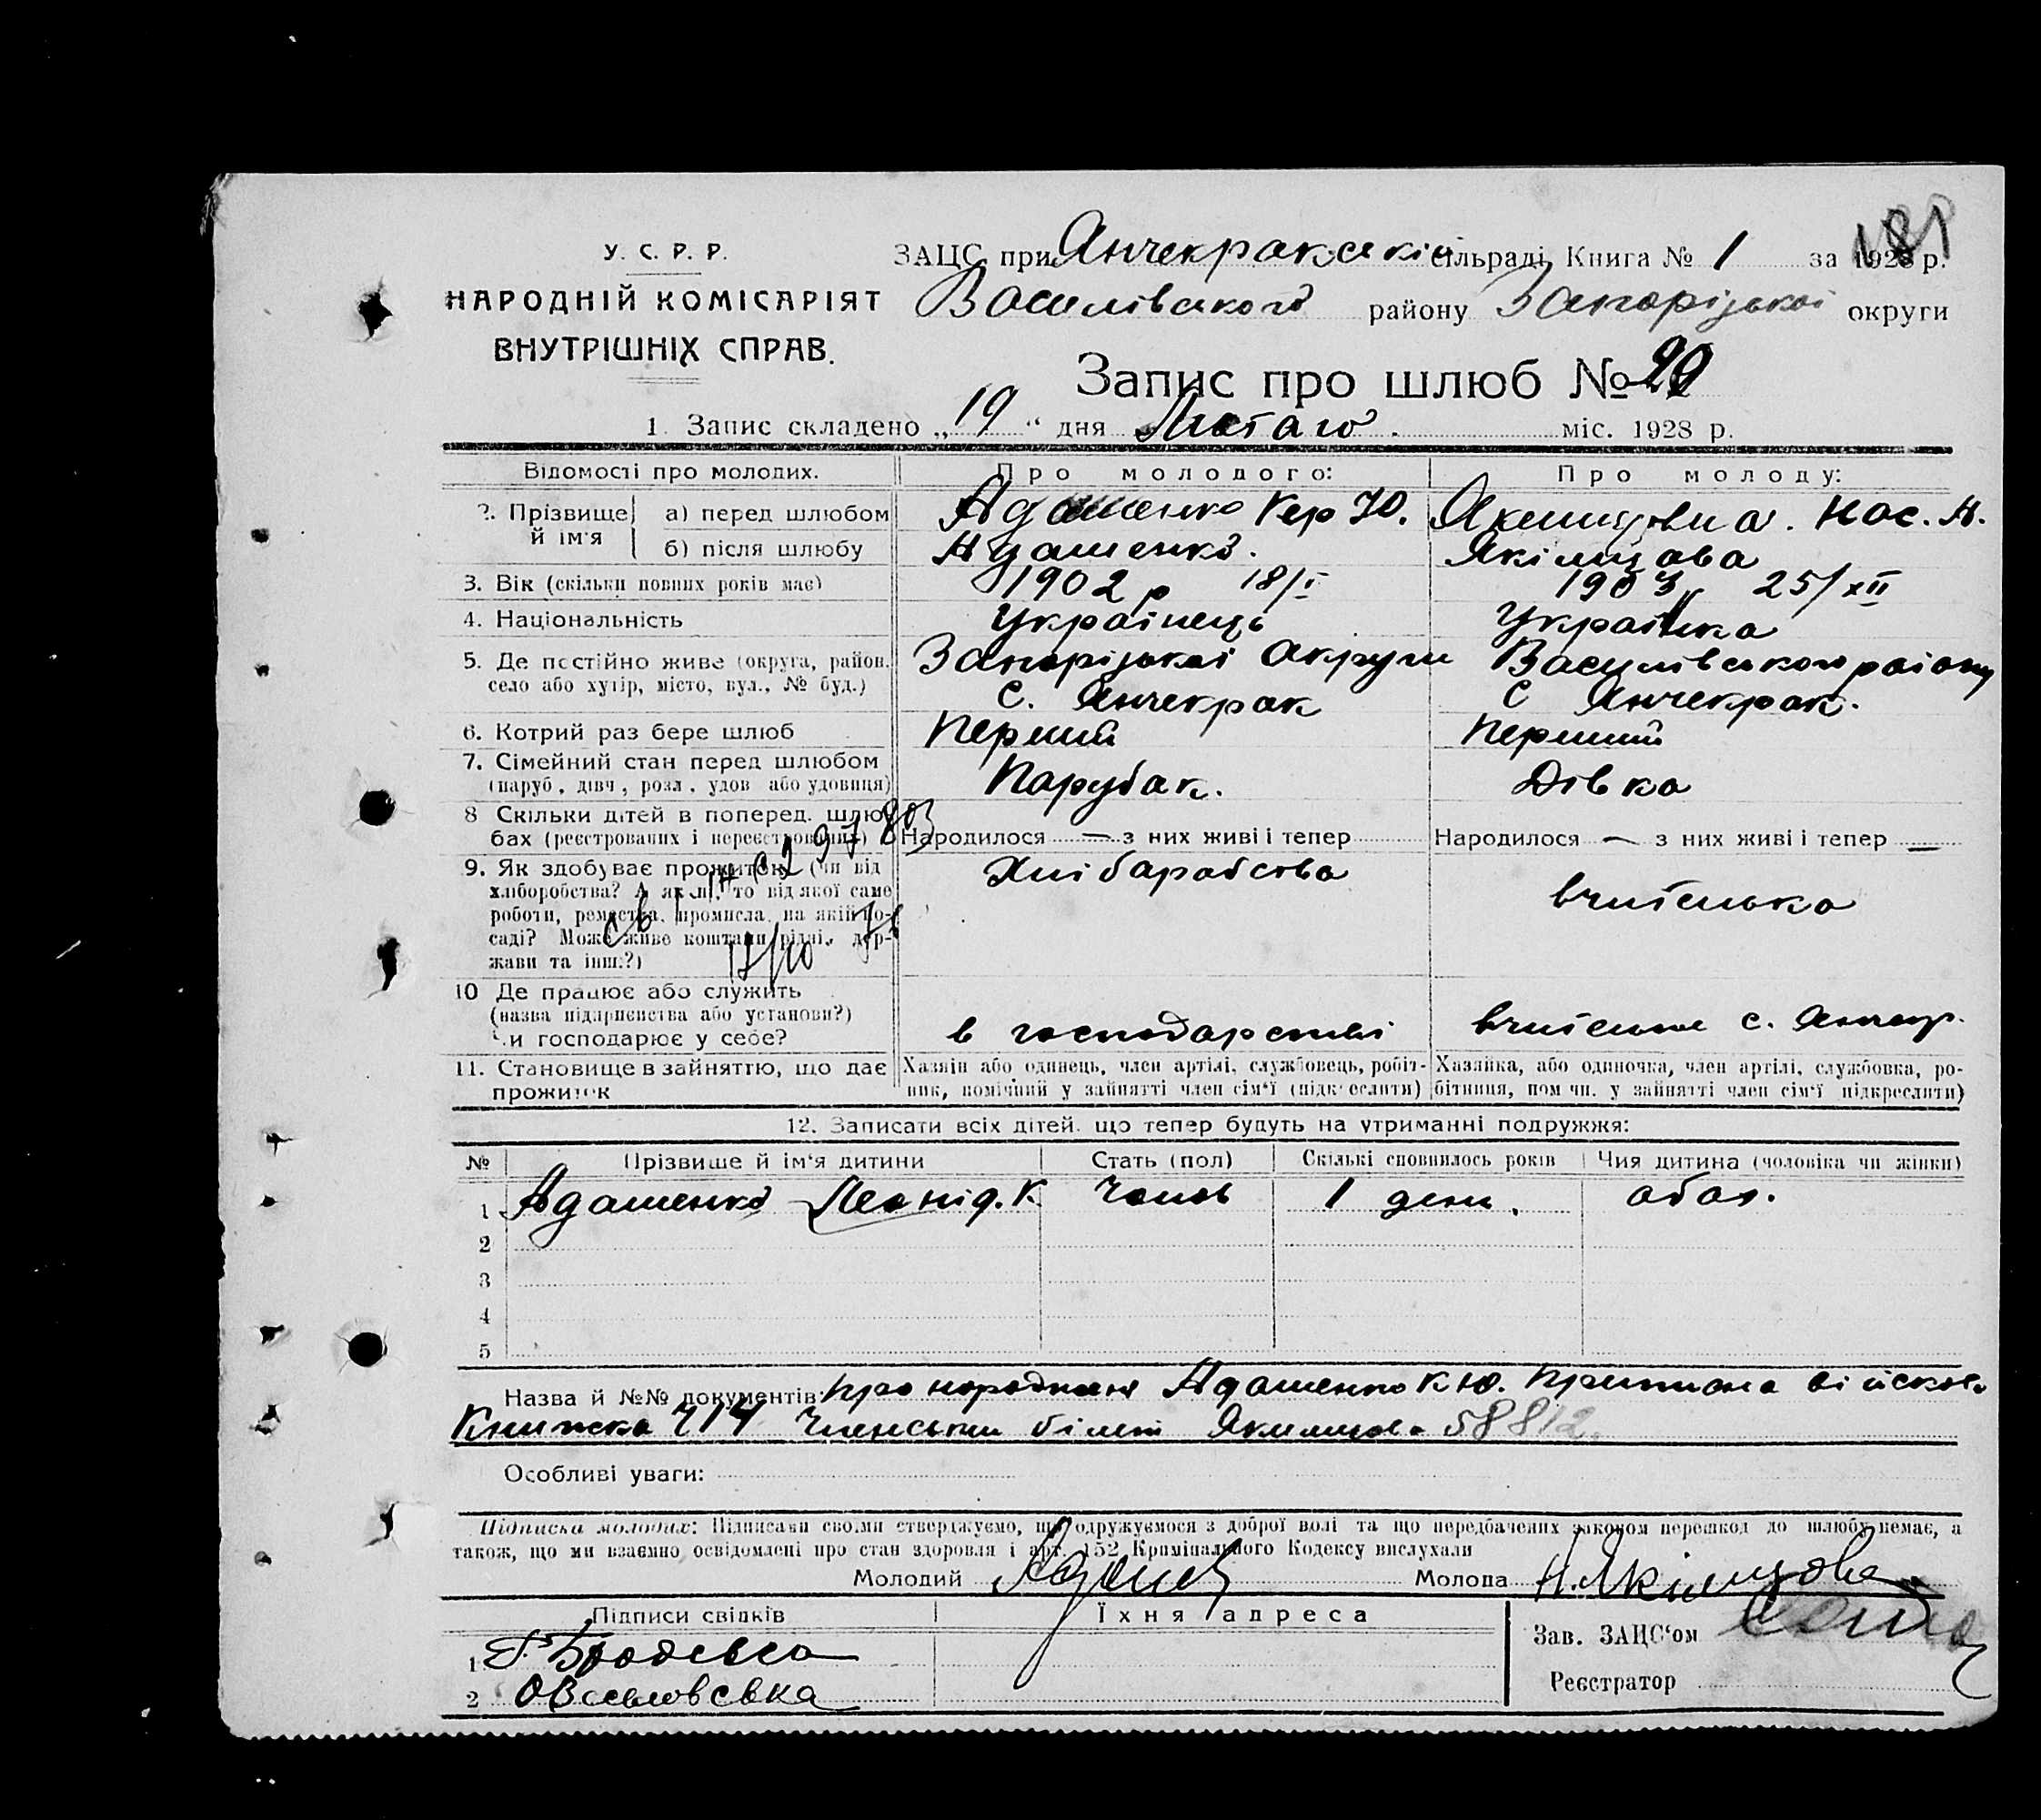 У. С. Р. Р.
НАРОДНІЙ КОМІСАРІЯТ
ВНУТРІШНІХ СПРАВ.
ЗАЦС при Янчекракскій сільраді, Книга № 1 за 1928 р.
Василівського району Запорізькоі округи
Запис про шлюб № 20
1. Запис складено „19“ дня Лютаго міс. 1928 р.
Відомості про молодих. Про молодого: Про молоду:
2. Прізвище й ім'я
а) перед шлюбом Адашенко Кер Ю. Якимцовна. Нас. А.
б) після шлюбу Адашенко. Якімцова
3. Вік (скільки повних років має) 1902 р 18/I 1903 р 25/XII
4. Національність Украінець Украінка
5. Де постійно живе (округа, район, Запорізькоі Округи Василівського раіону
село або хутір, місто, вул., № буд.) с. Янчекрак с Янчекрак.
6. Котрий раз бере шлюб Перший Перший
7. Сімейний стан перед шлюбом
(паруб., дівч., розл., удов. або удовиця) Парубак. Дівка
8 Скільки дітей в поперед. шлю-
бах (реєстрованих і нереєстрованих) Народилося — з них живі і тепер Народилося — з них живі і тепер —
9. Як здобуває прожиток (чи від Хлібарабства
хліборобства? А як ні, то від якої саме вчителька
роботи, ремества, промисла, на якій по-
саді? Може живе коштами рідні, дер-
жави та інш.?)
10 Де працює або служить
(назва підприємства або установи?)
Чи господарює у себе? в господарстві с. Янчкр.
11. Становище в зайняттю, що дає Хазяїн або одинець, член артілі, службовець, робіт- Хазяйка, або одиночка, член артілі, службовка, ро-
прожиток ник, помічний у зайнятті член сім'ї (підкреслити) бітниця, помічн. у зайнятті член сім'ї підкреслити)
12. Записати всіх дітей, що тепер будуть на утриманні подружжя:
№ Прізвище й ім'я дитини Стать (пол) Скількі сповнилось років Чия дитина (чоловіка чи жінки)
1 Адашенко Леонід. К. Чолов 1 день. обох.
2
3
4
5
Назва й №№ документів: Про народженя Адашенко К Ю. Приписна війскова
Книжка 414 Членський білет Якимцова 58812.
Особливі уваги:
Підписка молодих: Підписами своїми стверджуємо, що одружуємося з доброї волі та що передбачених законом перешкод до шлюбу немає, а
також, що ми взаємно освідомлені про стан здоровля і арт. 152 Кримінального Кодексу вислухали
Молодий Молода Н. Якімцова
Підписи свідків Їхня адреса
Зав. ЗАЦС'ом
1.
Реєстратор
2